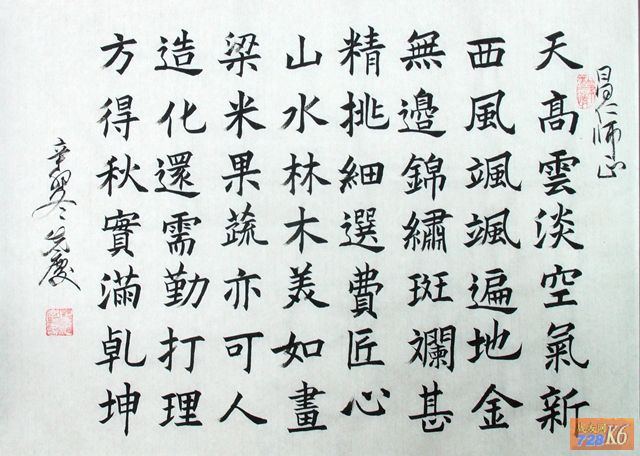 昌仁师正
天高雲淡空氣新
西風颯颯遍地金
無邊錦繡斑斕甚
精挑細選費匠心
山水林木美如畫
梁米果蔬亦可人
造化還需勤打理
方得秋實滿乹坤
728 K6